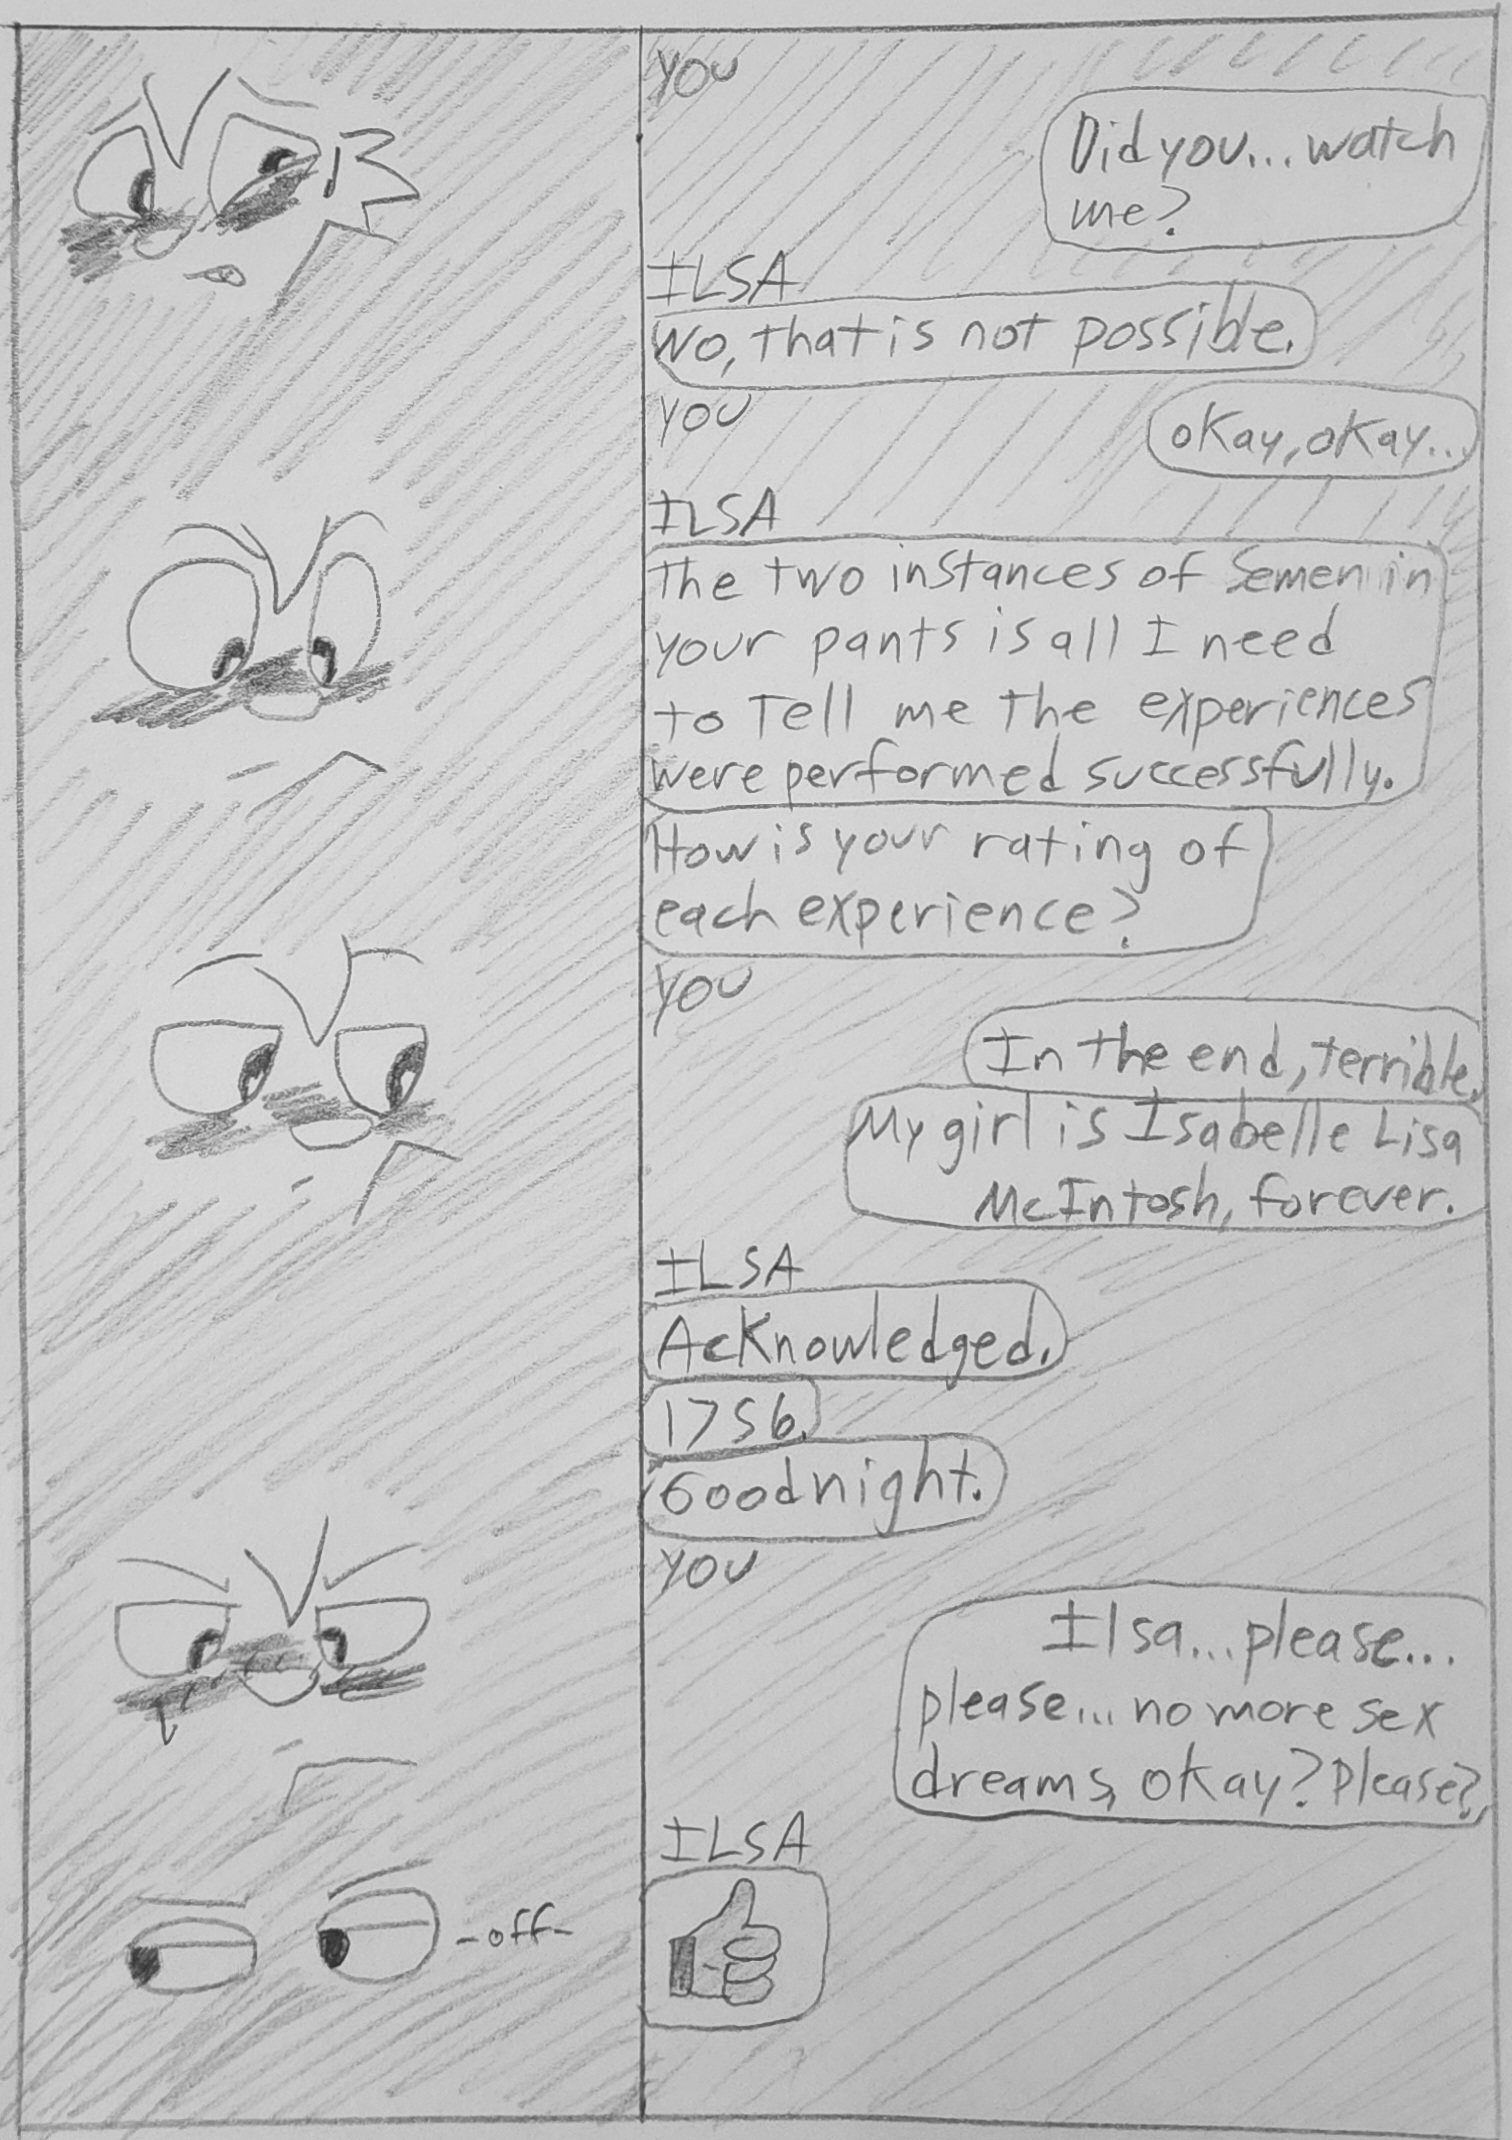 YOU
Did you... watch
me?
ILSA
No, that is not possible.
YOU
okay, okay...
ILSA
The two instances of semen in
your pants is all I need
to tell me the experiences
were performed successfully.
How is your rating of
each experience?
YOU
In the end, terrible.
My girl is Isabelle Lisa
McIntosh, forever.
ILSA
Acknowledged.
1756.
Goodnight.
YOU
Ilsa... please...
please... no more sex
dreams, okay? Please?
ILSA
-off-